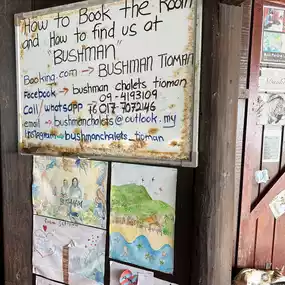 How to Book the Room
and How to find us at
"BUSHMAN"
Booking.com → BUSHMAN TIOMAN
Facebook → bushman chalets tioman
09-4193109
Call/whatsapp 016 7072146
email → bushmanchalets@outlook.my
Instagram → bushmanchalets_tioman